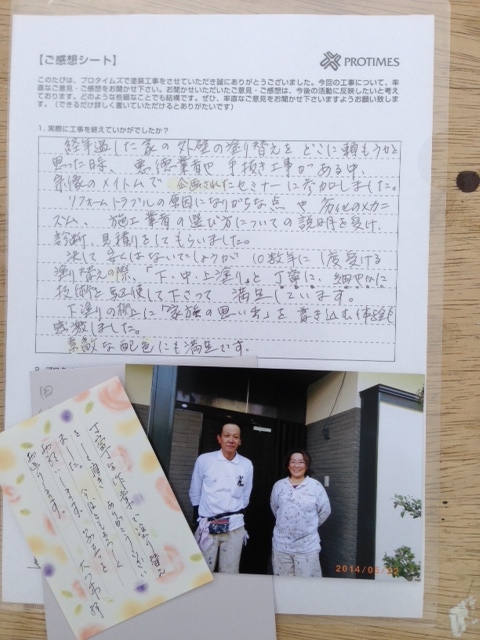 【ご感想シート】
PROTIMES
このたびは、プロタイムズで塗装工事をさせていただき誠にありがとうございました。今回の工事について、率
直なご意見・ご感想をお聞かせ下さい。お聞かせいただいたご意見・ご感想は、今後の活動に反映したいと考え
ております。どのような些細なことでも結構です。ぜひ、率直なご意見をお聞かせ下さいますようお願い致しま
す。（できるだけ詳しく書いていただけるとありがたいです）
1. 実際に工事を終えていかがでしたか？
経年過した家の外壁の塗り替えを どこに頼もうかな
思った時、悪徳業者や 手抜き工事がある中、
宗像のメイトムで 企画されたセミナーに参加しました。
リフォームトラブルの原因になりがちな点 や 劣化のメカニ
ズム、施工業者の選び方についての説明を受け、
診断、見積りをしてもらいました。
決して安くはないでしょうが 10数年に1度受ける
塗り替えの際、「下・中・上塗り」と 丁寧に、細やかに
技術を駆使して下さって 満足しています。
下塗りの柳上に「家族の思い出」を 書き込む体験
感激しました。
素敵な配色にも満足です。
丁寧な作業で塗り替え
ありがとうござい
ました。
2014/05/02